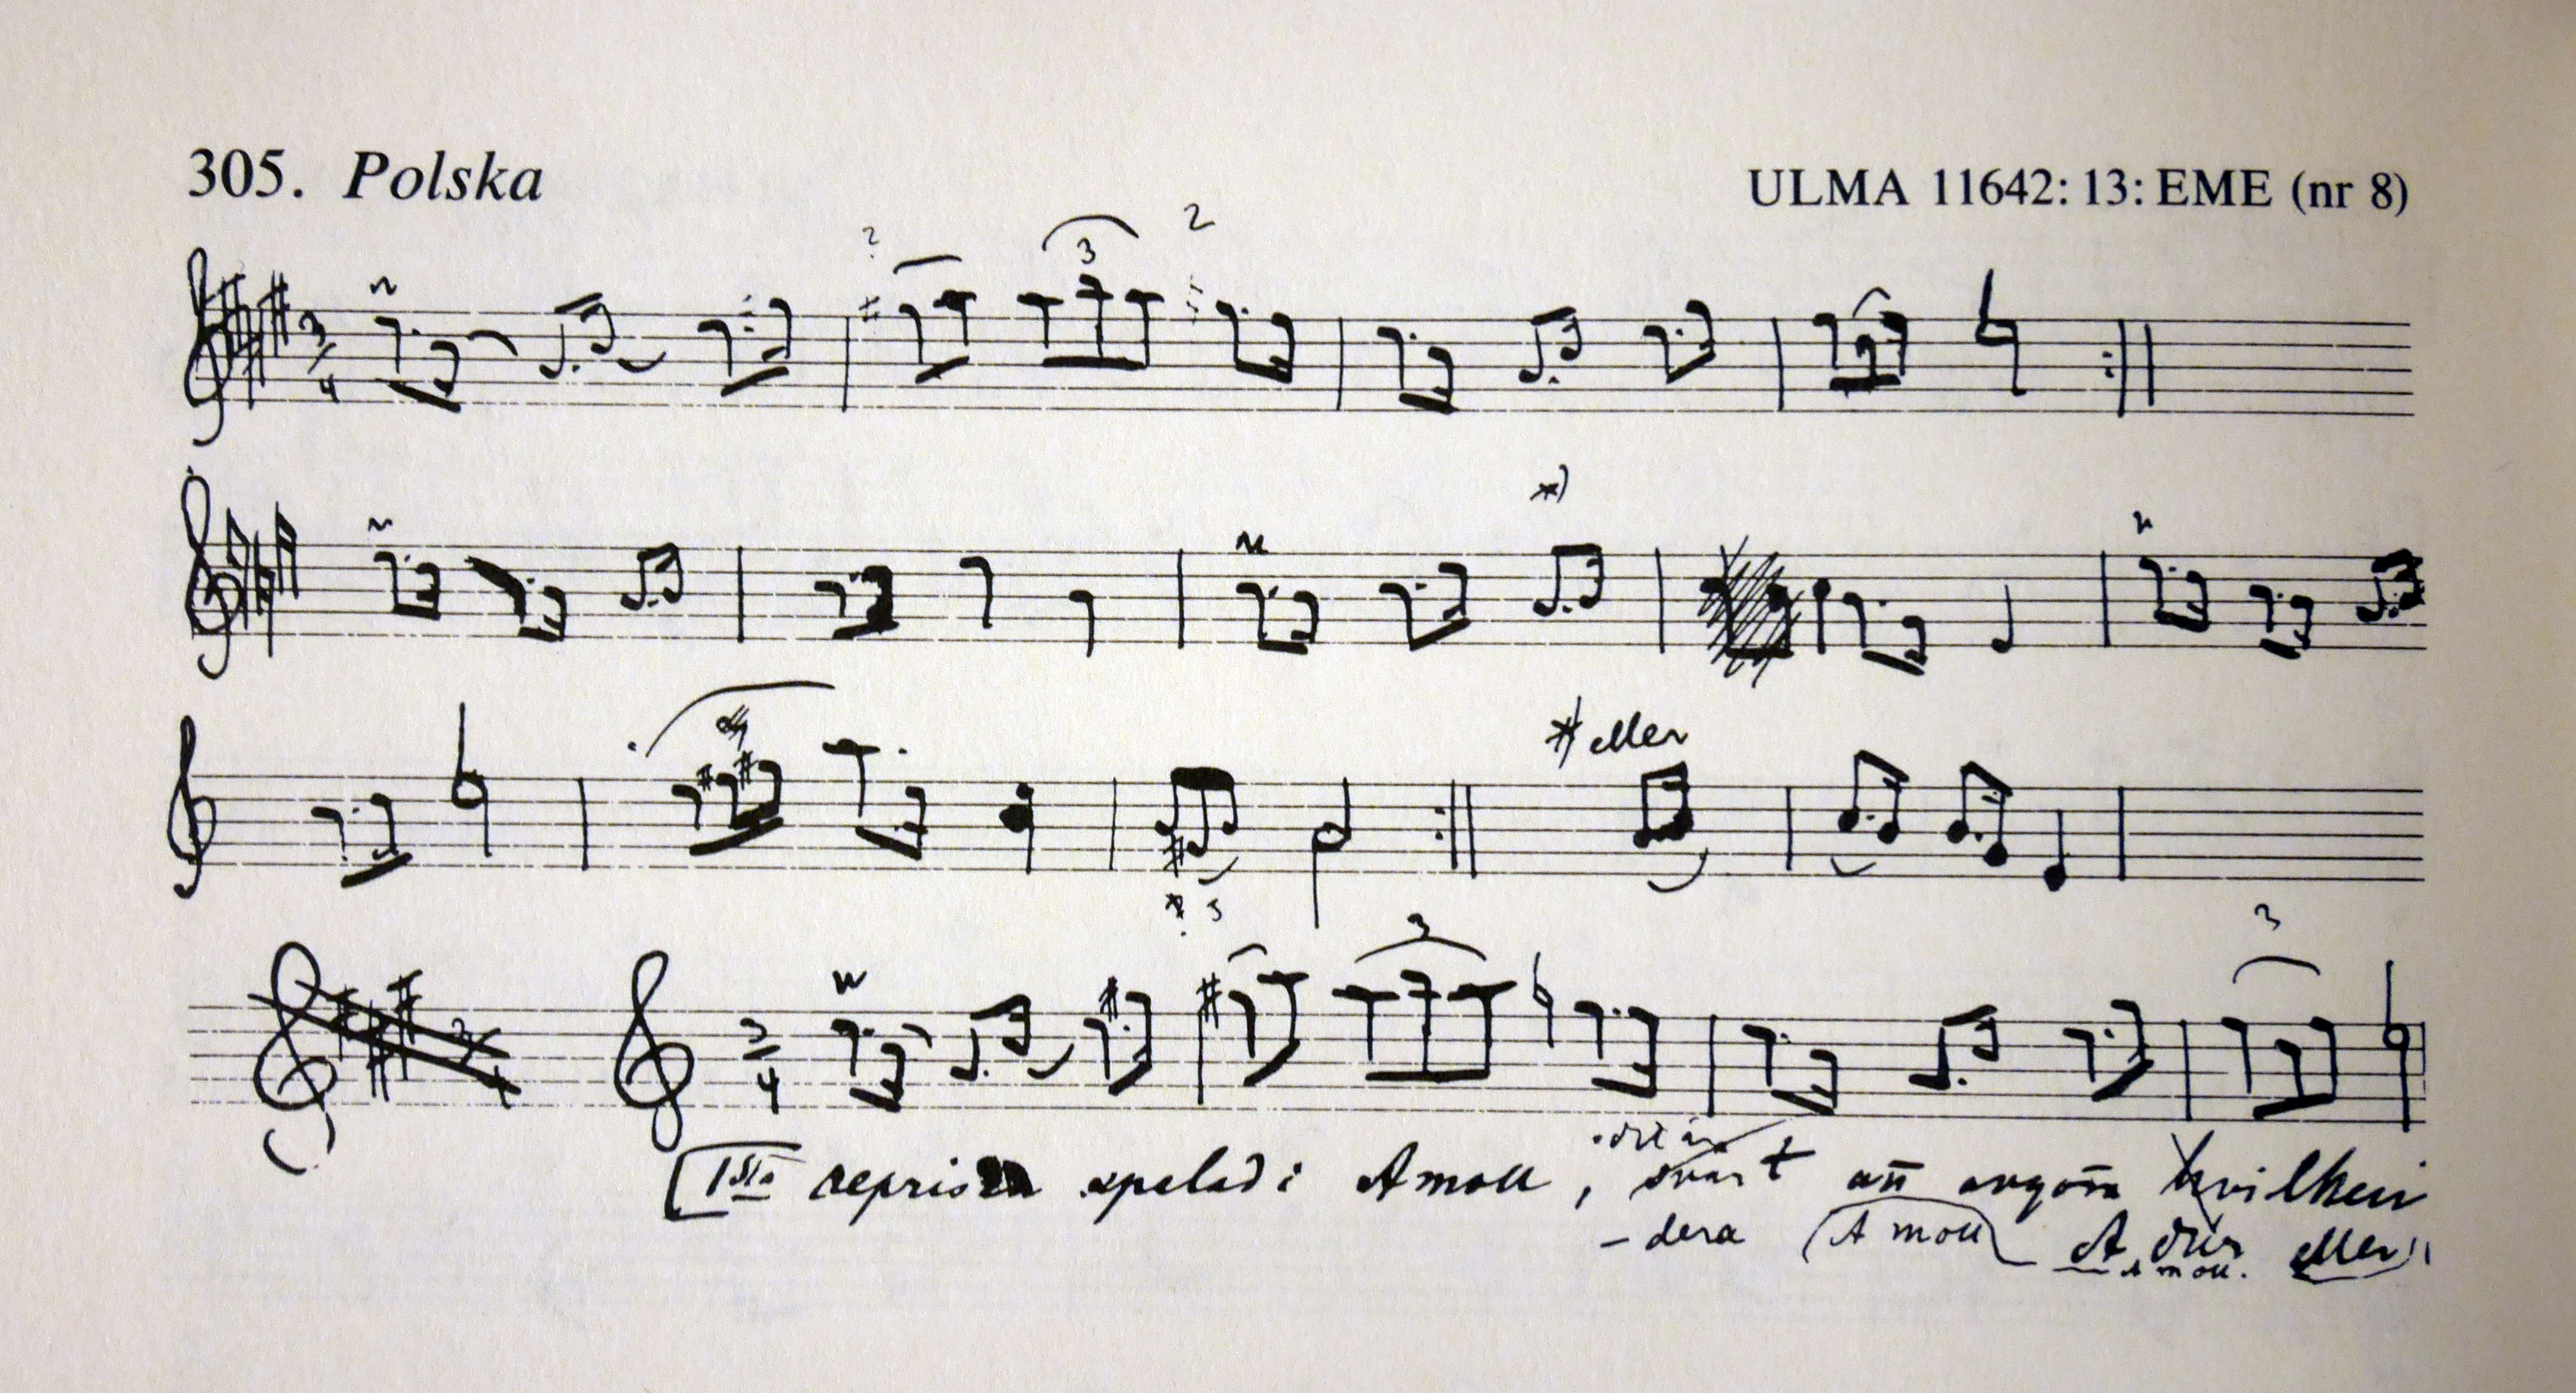 305. Polska
ULMA 11642:13:EME (nr 8)
3
3/4
*)
* eller
3
3
3/4
1sta reprisen spelad i A moll, svårt att avgöra hvilken
det är
- dera A moll A dur eller
A moll.